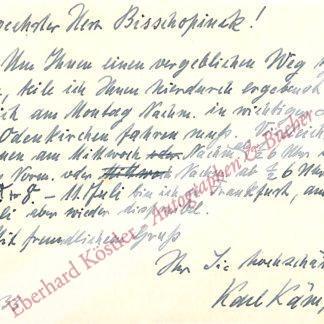 geehrter Herr Bisschopinck!
Um Ihnen einen vergeblichen Weg
teile ich Ihnen hierdurch ergebenst
ich am Montag Nachm. in wichtigen
Odenkirchen fahren muß.
am Mittwoch Nachm. 6 Uhr
Vorm. oder Nachm. ab 6 Uhr
8. - 11. Juli bin ich in Frankfurt, am
aber wieder
Mit freundlichem Gruß
Ihr Sie hochschätz
Karl
Eberhard Köstler Autographen & Bücher